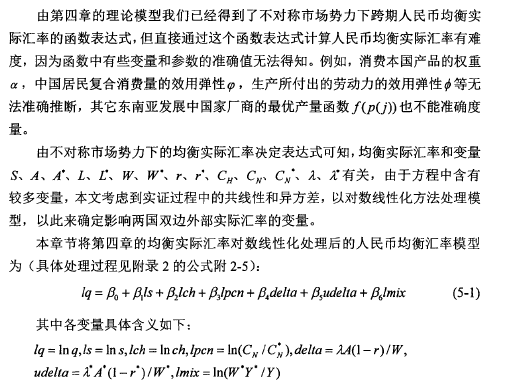 由第四章的理论模型我们已经得到了不对称市场势力下跨期人民币均衡实
际汇率的函数表达式,但直接通过这个函数表达式计算人民币均衡实际汇率有难
度,因为函数中有些变量和参数的准确值无法得知。例如,消费本国产品的权重
α,中国居民复合消费量的效用弹性φ,生产所付出的劳动力的效用弹性ϕ等无
法准确推断,其它东南亚发展中国家厂商的最优产量函数 f(p(j))也不能准确度
量。
由不对称市场势力下的均衡实际汇率决定表达式可知,均衡实际汇率和变量
S、A、A*、L、L*、W、W*、r、r*、C_H、C_N、C_N*、λ、λ*有关,由于方程中含有
较多变量,本文考虑到实证过程中的共线性和异方差,以对数线性化方法处理模
型,以此来确定影响两国双边外部实际汇率的变量。
本章节将第四章的均衡实际汇率对数线性化处理后的人民币均衡汇率模型
为(具体处理过程见附录 2 的公式附 2-5):
lq = β₀ + β₁ls + β₂lch + β₃lpcn + β₄delta + β₅udelta + β₆lmix (5-1)
其中各变量具体含义如下:
lq = ln q, ls = ln s, lch = ln ch, lpcn = ln(C_N / C_N*), delta = λA(1−r)/W,
udelta = λ*A*(1−r*)/W*, lmix = ln(W*Y*/Y)